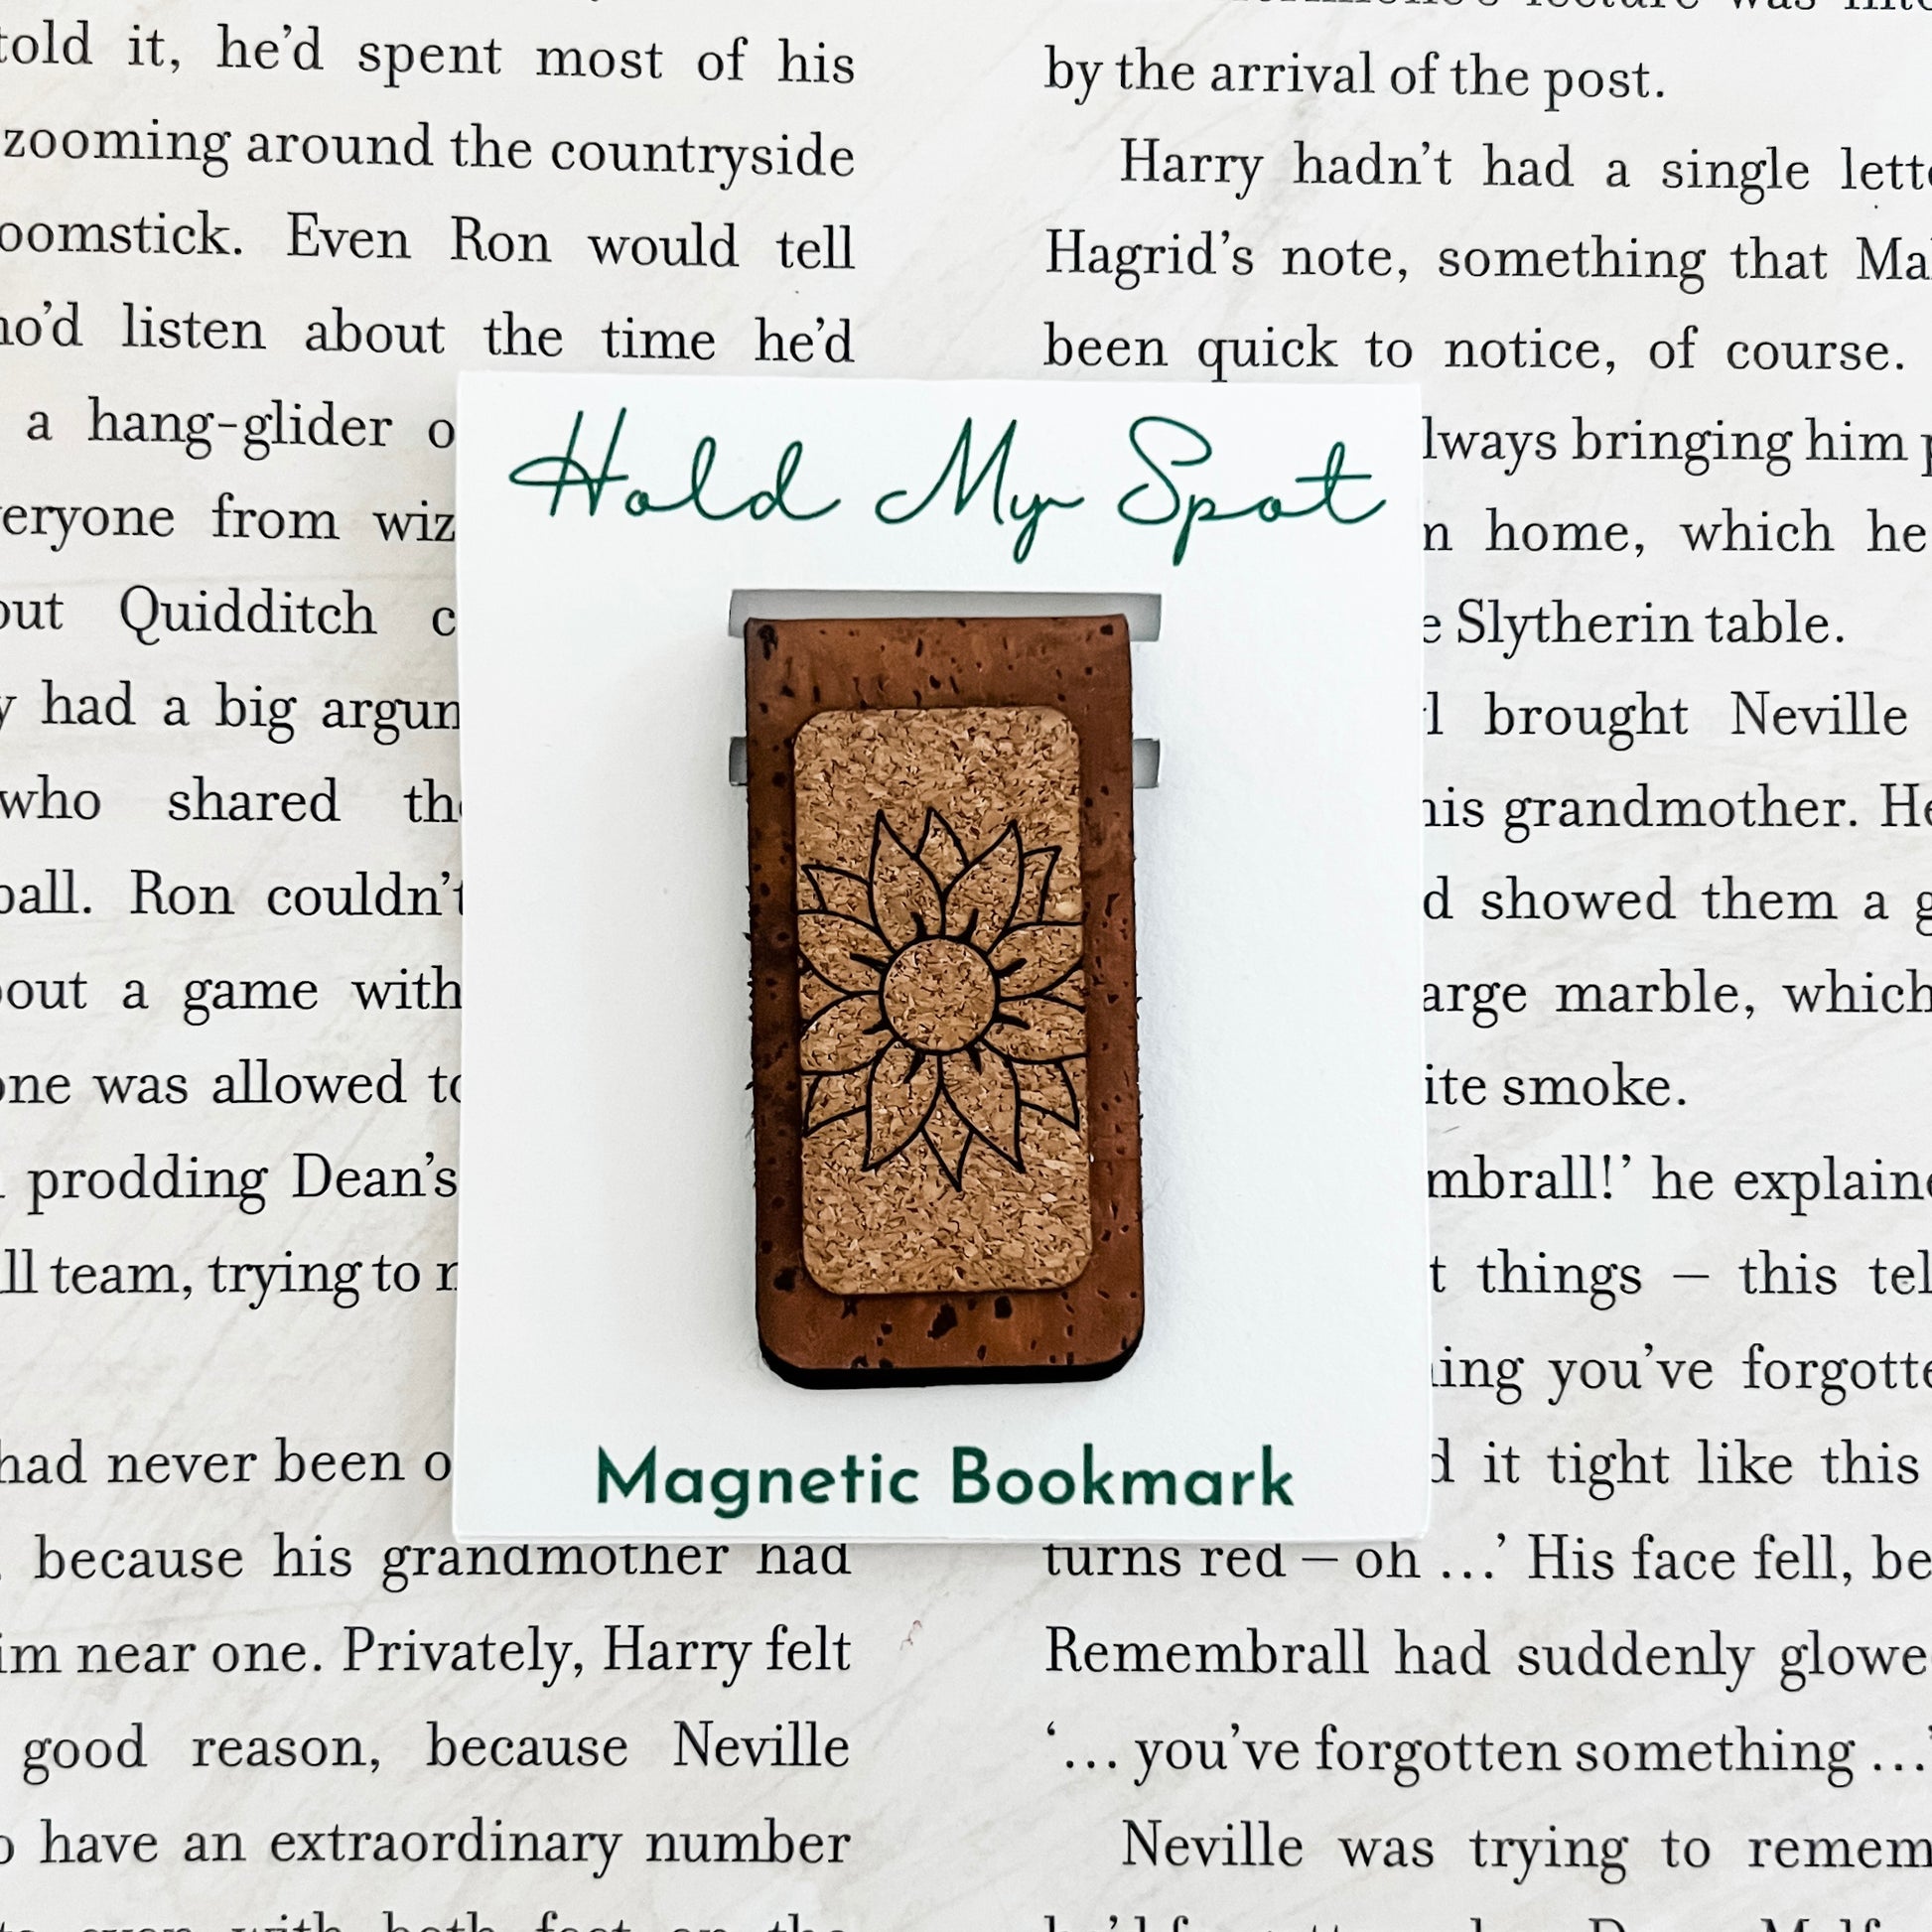 told it, he'd spent most of his
zooming around the countryside
oomstick. Even Ron would tell
ho'd listen about the time he'd
a hang-glider o
veryone from wiz
out Quidditch c
y had a big argun
who shared the
ball. Ron couldn't
bout a game with
one was allowed to
prodding Dean's
ll team, trying to
had never been o
because his grandmother had
im near one. Privately, Harry felt
good reason, because Neville
o have an extraordinary number
even with both feet on the
Hold My Spot
Magnetic Bookmark
lecture was
by the arrival of the post.
Harry hadn't had a single lette
Hagrid's note, something that Mal
been quick to notice, of course.
lways bringing him
home, which he
e Slytherin table.
l brought Neville
his grandmother. He
d showed them a g
arge marble, which
ite smoke.
mbrall!' he explaine
t things – this tel
ing you've forgotte
d it tight like this
turns red – oh …' His face fell, be
Remembrall had suddenly glowe
'… you've forgotten something …'
Neville was trying to remem